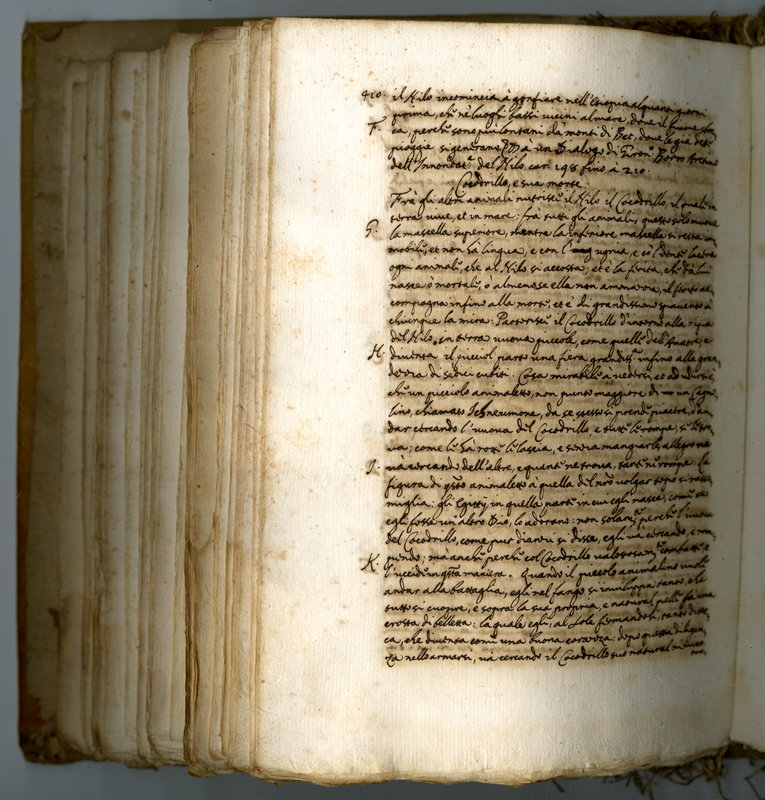 410. il Nilo incomincia à gonfiare nell'Etiopia alquanti giorni
prima, che ne luoghi bassi uicini al mare, doue il fiume
F. ca, perche sono più lontani da monti di Bet, doue le già dette
pioggie si generano. Da un Dialogo di Giron.º Borro Aretino
dell'Innondat.e del Nilo car. 198 fino à 210.
Cocodrillo, e sua morte.
Frà gli altri animali nutrisce il Nilo il Cocodrillo, il quale in
terra uiue, et in mare: frà tutti gli animali, questo solo muoue
G. la mascella superiore, mentre la inferiore mascella si resta im
mobile, et non hà lingua, e con l' ugnia, e cò l denti lacera
ogni animale, che al Nilo si accosta, et è la ferita, che da lui
nasce ò mortale, ò almeno se ella non ammazza, il ferito ac
compagna infino alla morte, et è di grandissimo spauento à
chiunque la mira. Partorisce il Cocodrillo d'intorno alla ripa
del Nilo, in terra uuoua piccole, come quelle dell'Anatre, e
H. diuenta il picciol parto una fiera grandiss.a infino alla gran
dezza di sedici cubiti. Cosa mirabile à uedersi, et ad udirsi è,
che un picciolo animaletto, non punto maggiore di un Cagno
lino, chiamato Ichneumone, da se stesso si prende piacere, d'an
dar cercando l'uuoua del Cocodrillo, e tutte le rompe, se le tro
ua; come le hà rotte le lascia, e senza mangiarle, allegro ne
I. uà cercando dell'altre, e quante ne troua, tante ne rompe. La
figura di qsto animaletto à quella del nrò uolgar topo si rasso
miglia: gli Egitty in quella parte in cui egli nasce, come se
egli fosse un'altro Dio, lo adorano: non solam.te perche l'uuoua
del Cocodrillo, come pur dianzi si disse, egli uà cercando, e rom
pendo; ma anche perche col Cocodrillo ualorosam.te combatte, e
K. l'uccide in qsta maniera. Quando il piccolo animalino uuole
andar alla battaglia, egli nel fango si inuiluppa tanto, che
tutto si cuopre, e sopra la sua propria, e natural pelle fà una
crosta di belletta: la quale egli, al Sole fermandosi, tanto disec
ca, che diuenta come una buona corazza: dopo questa diligen
za nello armarsi, uà cercando il Cocodrillo suo natural nimico